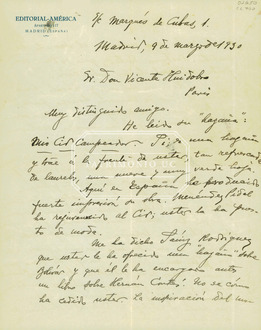 EDITORIAL-AMÉRICA
MADRID (ESPAÑA)
Marqués de Cubas, 1.
Madrid, 9 de marzo de 1930
Sr. Don Vicente Huidobro
París
Muy distinguido amigo:
He leído su "hazaña":
Mio Cid Campeador. Es una hazaña
y trae a la frente de usted, tan
de laureles, una nueva y muy verde hoja.
Aquí en España ha producido
fuerte impresión su obra. Menéndez Pidal
ha rejuvenecido al Cid; usted lo ha puesto
de moda.
Me ha dicho Sáinz Rodríguez
que usted le ha ofrecido una "hazaña" sobre
y que él le ha encargado
un libro sobre Hernán Cortés. No se como
ha cedido usted la inspiración del